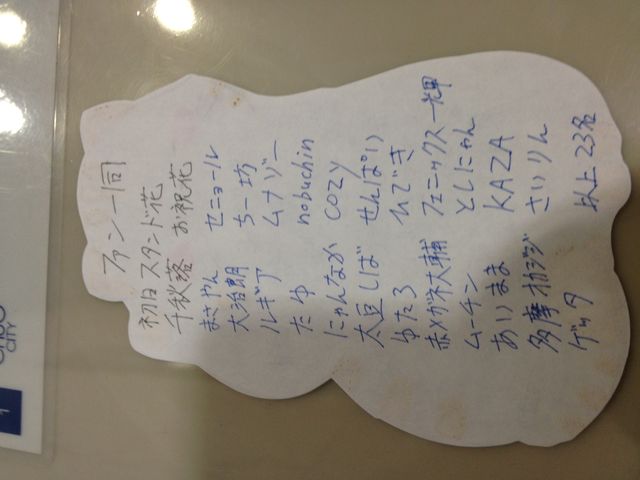 ファン一同
初日スタンド花
千秋落 お祝花
まさやん セニョール
大治朗 ちー坊
ルギア ムナゾー
たゆ nobuchin
にゃんなか COZY
大豆しば せんぱい
ゆたろ ひでき
赤メガネ大輔 フェニックス一輝
ムーチン としにゃん
あいまま KAZA
多摩オヤジ さいりん
ゲッタ 以上23名
CITY